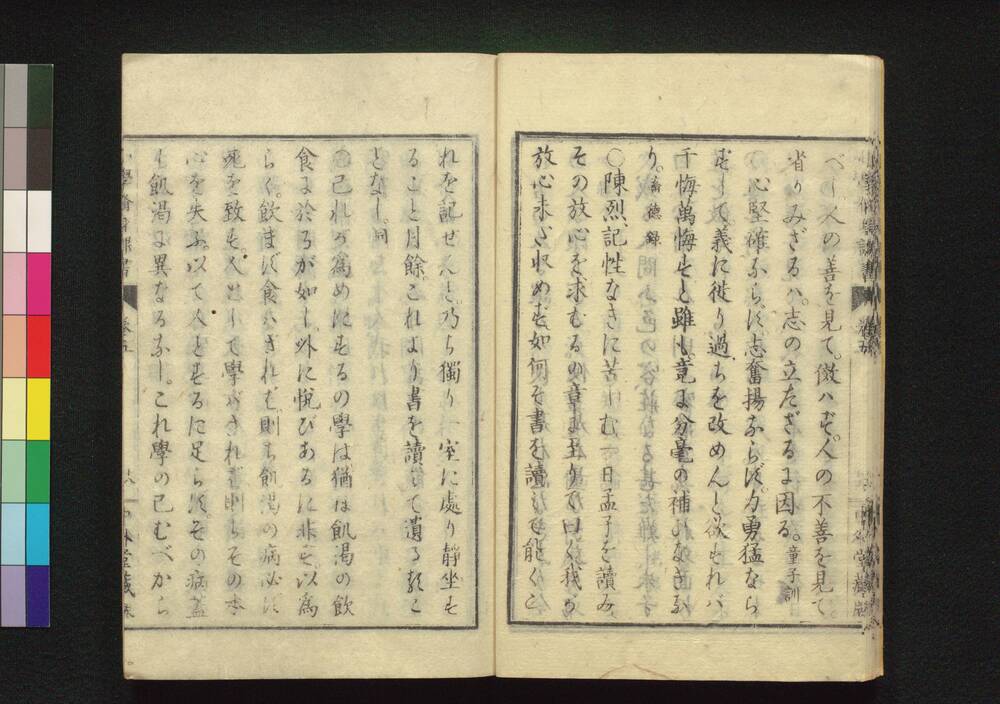 べし人の善を見て。倣ハず。人の不善を見て。
省りみざるハ。志の立たざるに因る。童子訓
〇心堅確ならず。志奮揚ならず。力勇猛なら
ずして義に徙り過ちを改めんと欲すれバ
千悔萬悔すと雖も竟に分毫の補ひなきな
り。畜德錄
〇陳烈記性なきに苦しむ一日孟子を讀み
その放心を求むるの章に至りて曰く我が
放心未だ収めず如何ぞ書を讀して能くこ
れを記せんと。乃ち獨り一室に處り靜坐す
ること月餘。これより書を讀して遺るゝこ
となし。同
〇己れが為めにするの學は猶ほ飢渇の飲
食に於るが如し。外に悦びあるに非ず。以為
らく。飲まず食ハざれバ則ち飢渇の病必ず
死を致す。人として學バざれバ則ちその本
心を失ふ。以て人とするに足らず。その病蓋
し飢渇に異なるなし。これ學の已むべから